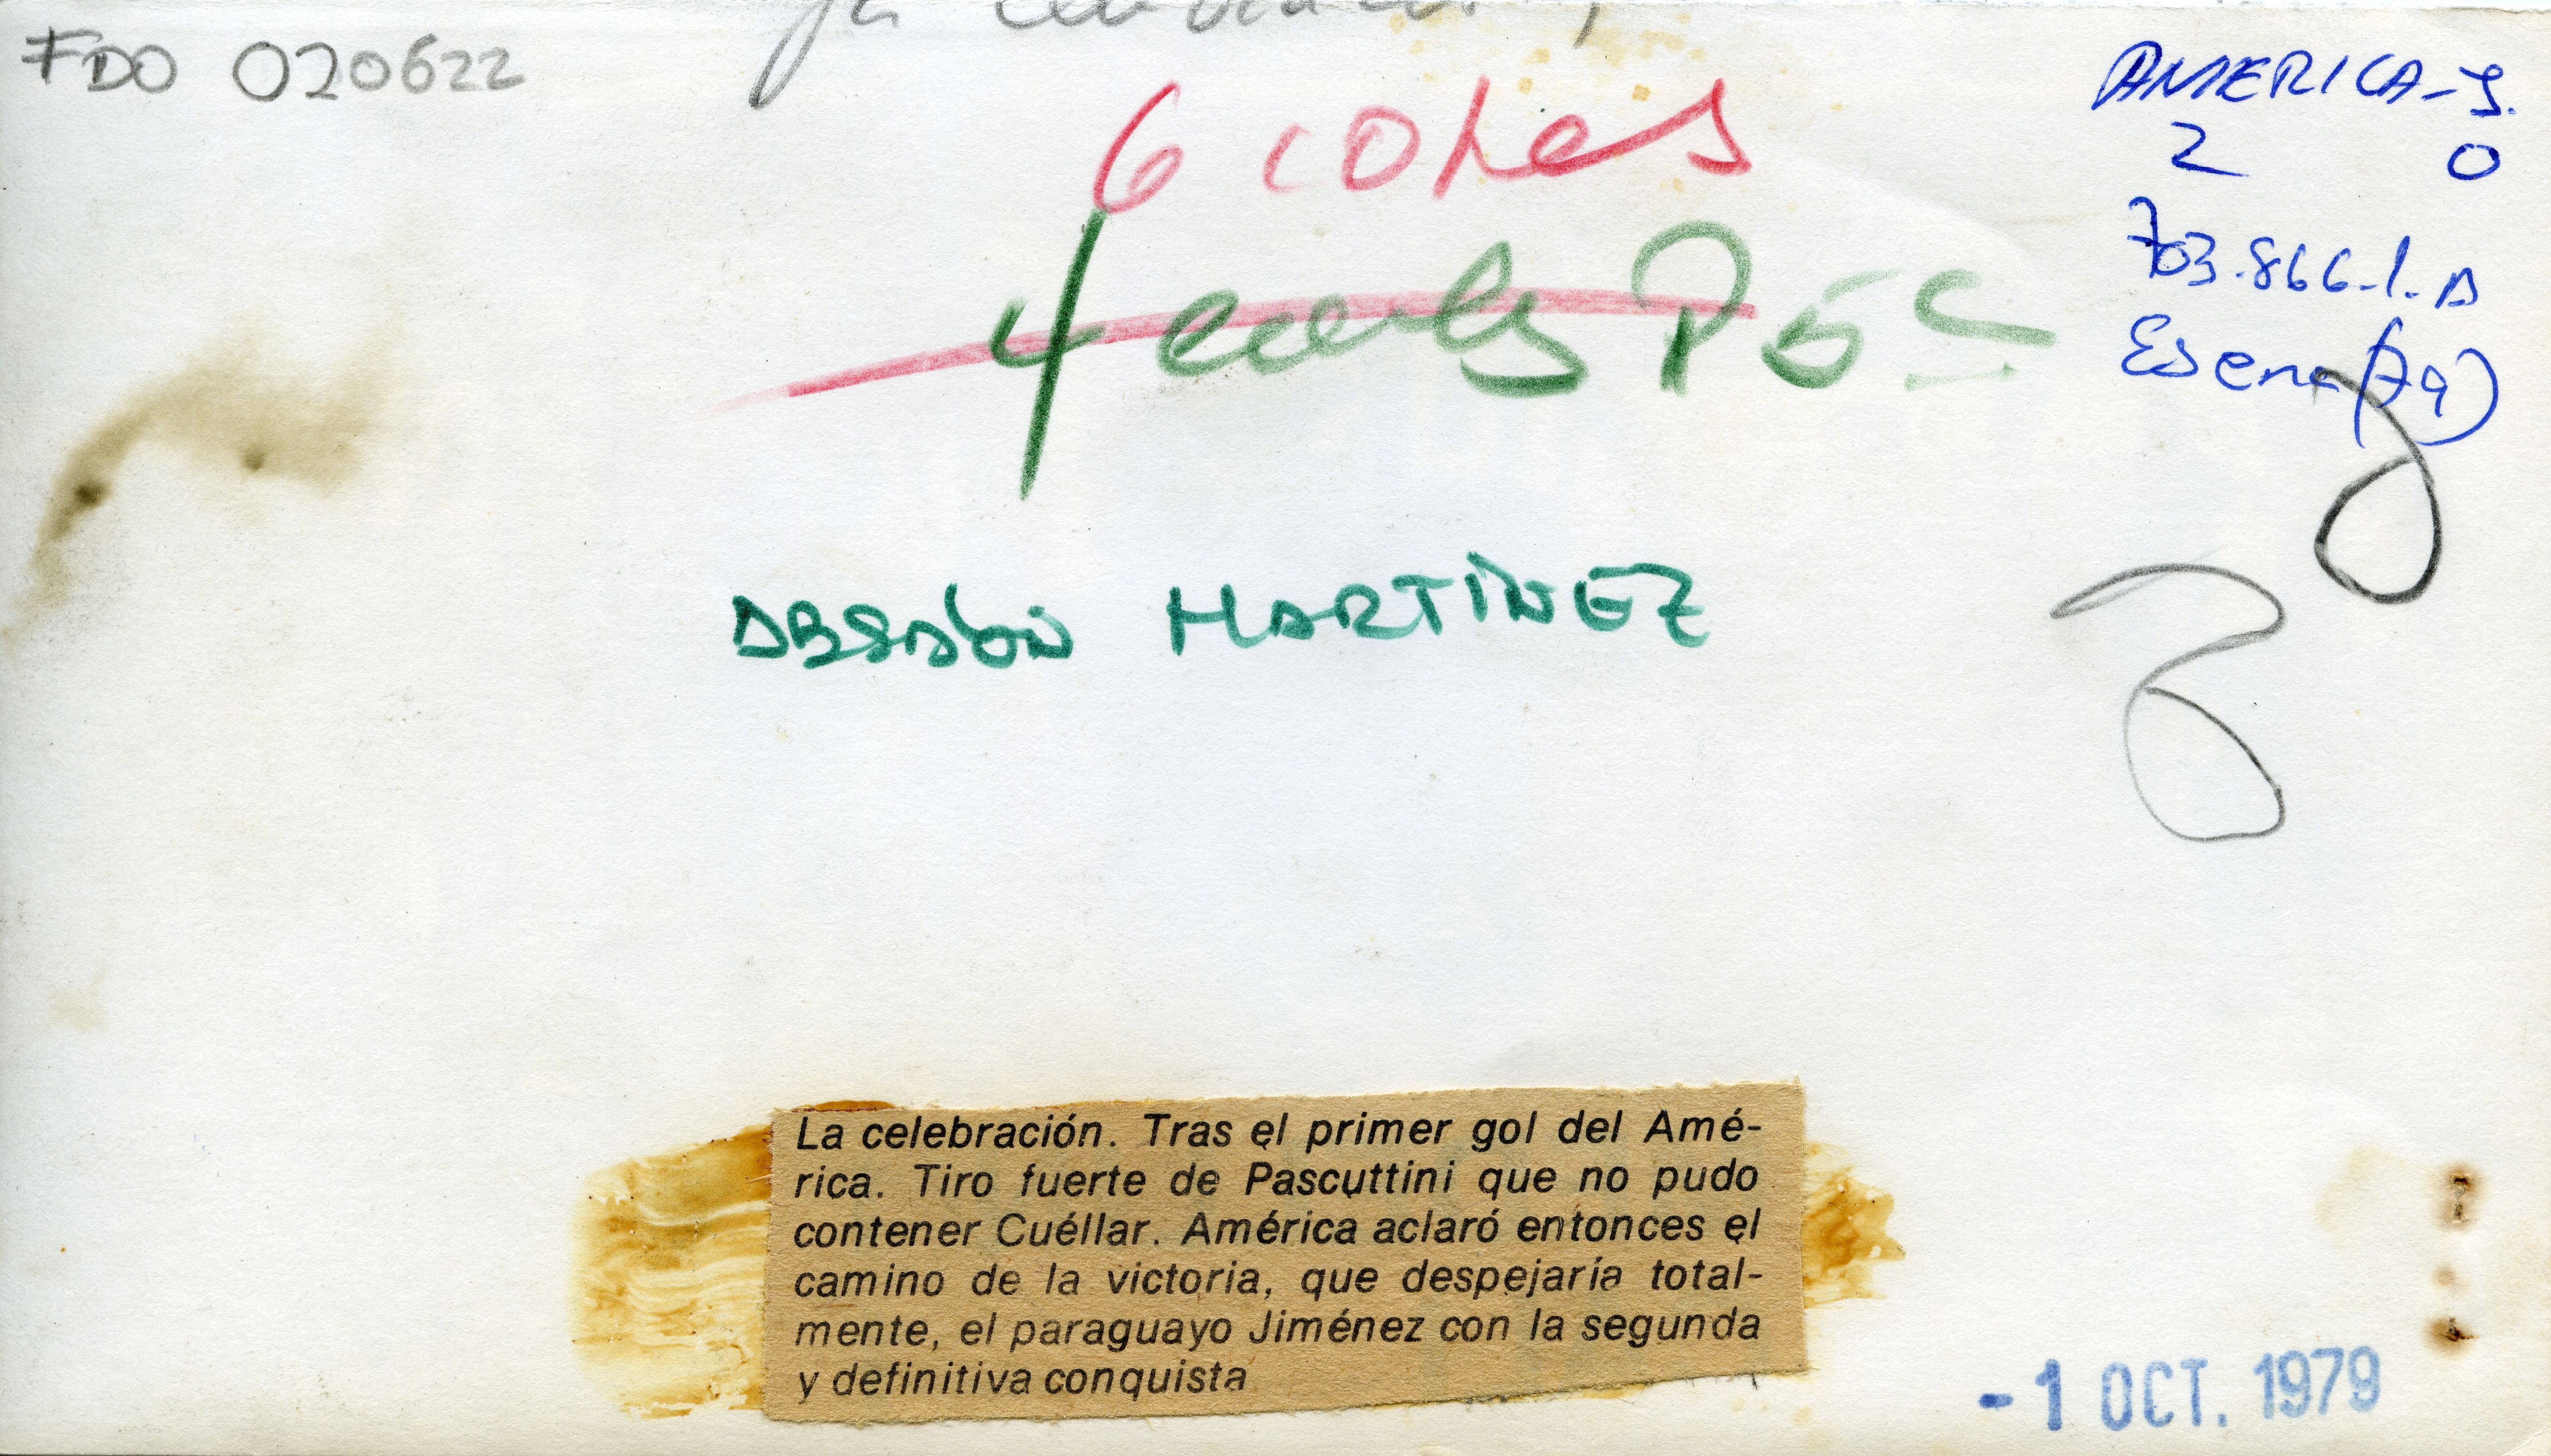 FDO 020622
AMERICA - S.
2 0
6 COLES
703.866-1.A
4 cols P
ABSALÓN MARTÍNEZ
La celebración. Tras el primer gol del Amé-
rica. Tiro fuerte de Pascuttini que no pudo
contener Cuéllar. América aclaró entonces el
camino de la victoria, que despejaría total-
mente, el paraguayo Jiménez con la segunda
y definitiva conquista
-1 OCT. 1979